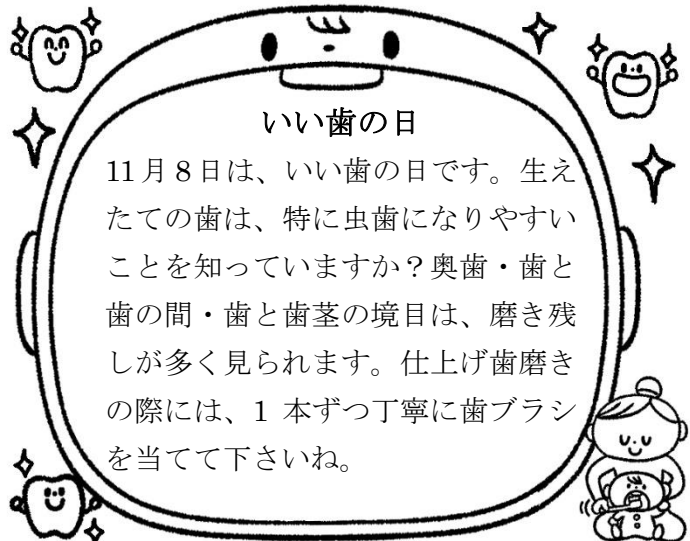 いい歯の日
11月８日は、いい歯の日です。生え
たての歯は、特に虫歯になりやすい
ことを知っていますか？奥歯・歯と
歯の間・歯と歯茎の境目は、磨き残
しが多く見られます。仕上げ歯磨き
の際には、1 本ずつ丁寧に歯ブラシ
を当てて下さいね。